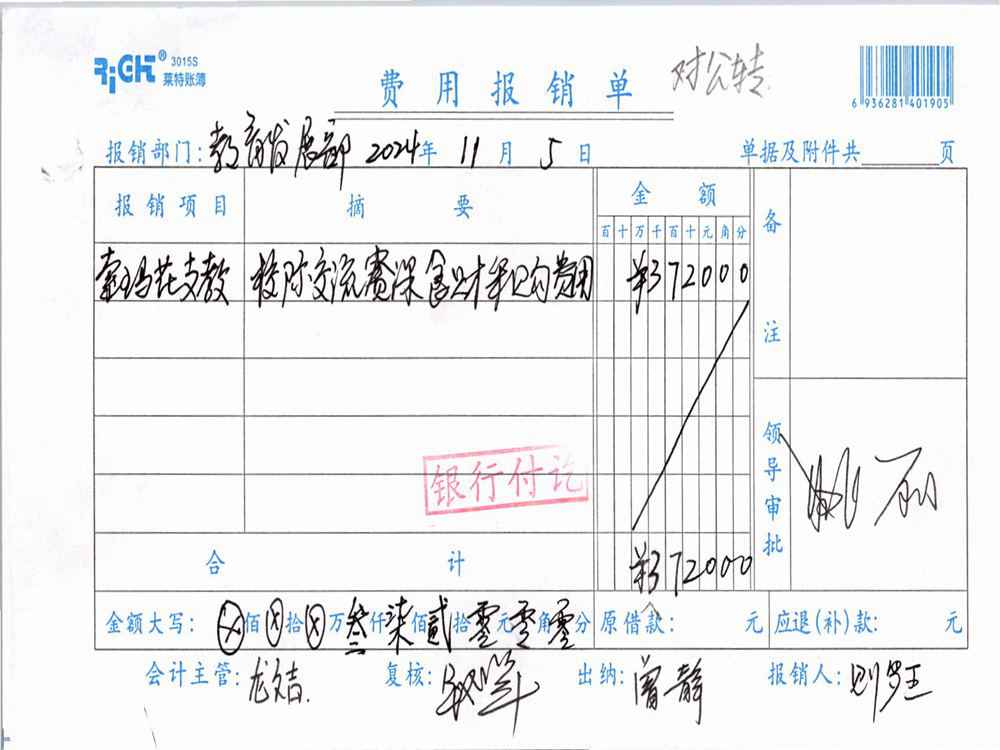 RiGHT® 3015S
莱特账簿
费用报销单 对公转
6 936281 401905
报销部门:教育发展部 2024年 11月 5日 单据及附件共 页
报销项目 摘要 金额 备注
百十万千百十元角分
索玛花支教 校际交流赛深 食材采购费用 ¥372000
银行付讫
领导审批
合计 ¥372000
金额大写: ⊗佰⊗拾⊗万叁仟柒佰贰拾零元零角零分 原借款: 元 应退(补)款: 元
会计主管:龙吉 复核: 出纳:曾静 报销人: